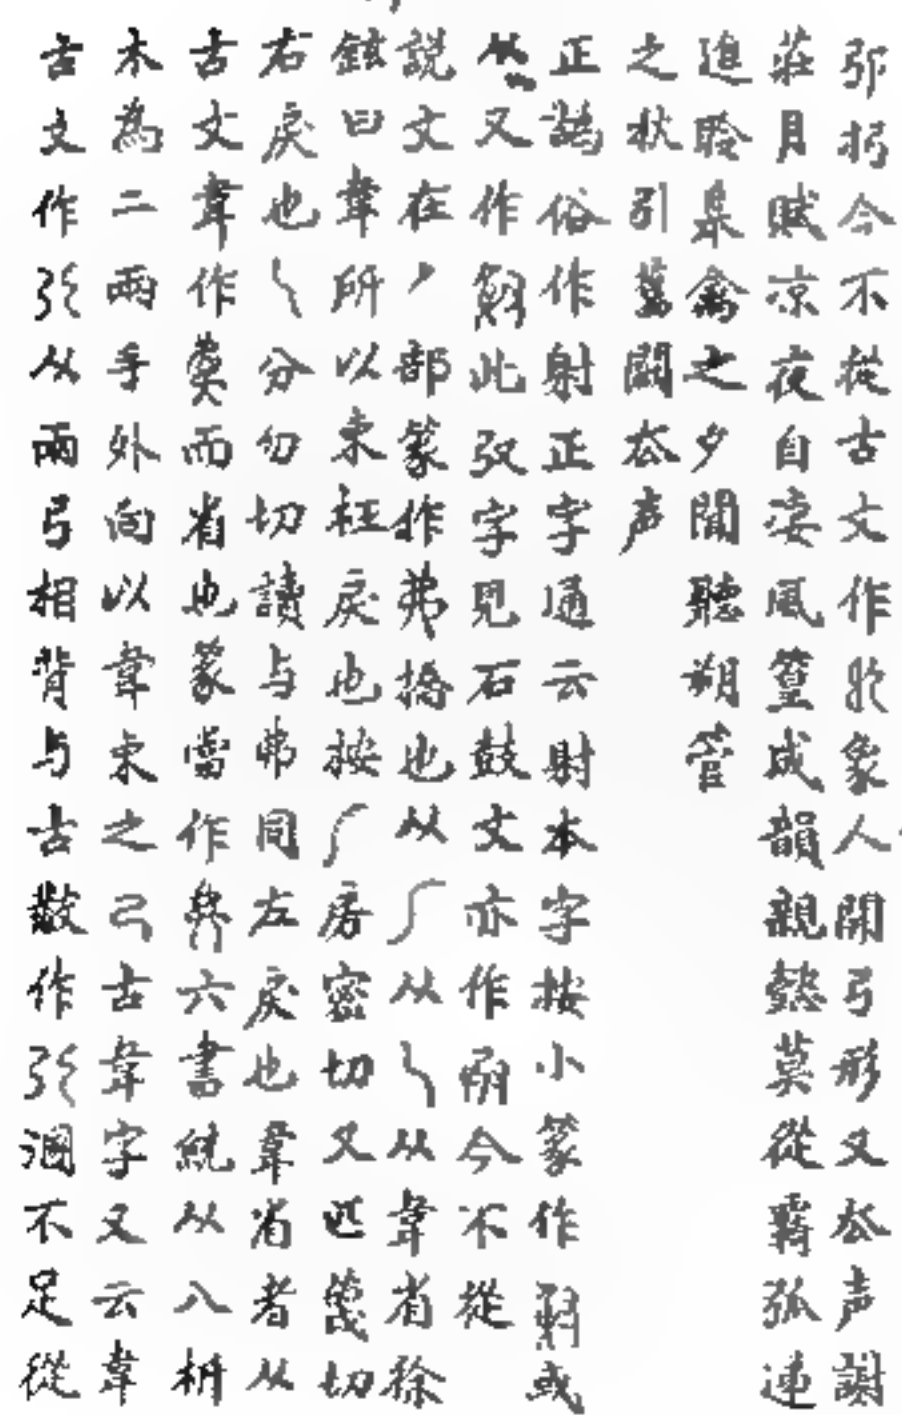 弨扬今不從古文作㢧象人開弓形又厺声謝
莊月賦凉夜自淒風篁成韻親懿莫從羇孤遞
進聆皋禽之夕聞聽朔管
之秋引舊闢厺声
正譌俗作射正字通云射本字按小篆作躲或
从又作躲此㢭字見石鼓文亦作今不從
說文在丿部篆作弗撟也从丿从乀从韋省徐
鉉曰韋所以束枉戾也按丿房密切又匹蔑切
右戾也乀分勿切讀与弗同左戾也韋省者从
古文韋作㚔而省也篆當作六書統从八枿
木為二兩手外向以韋束之弓古韋字又云韋
古文作从兩弓相背与古㪚作溷不足從